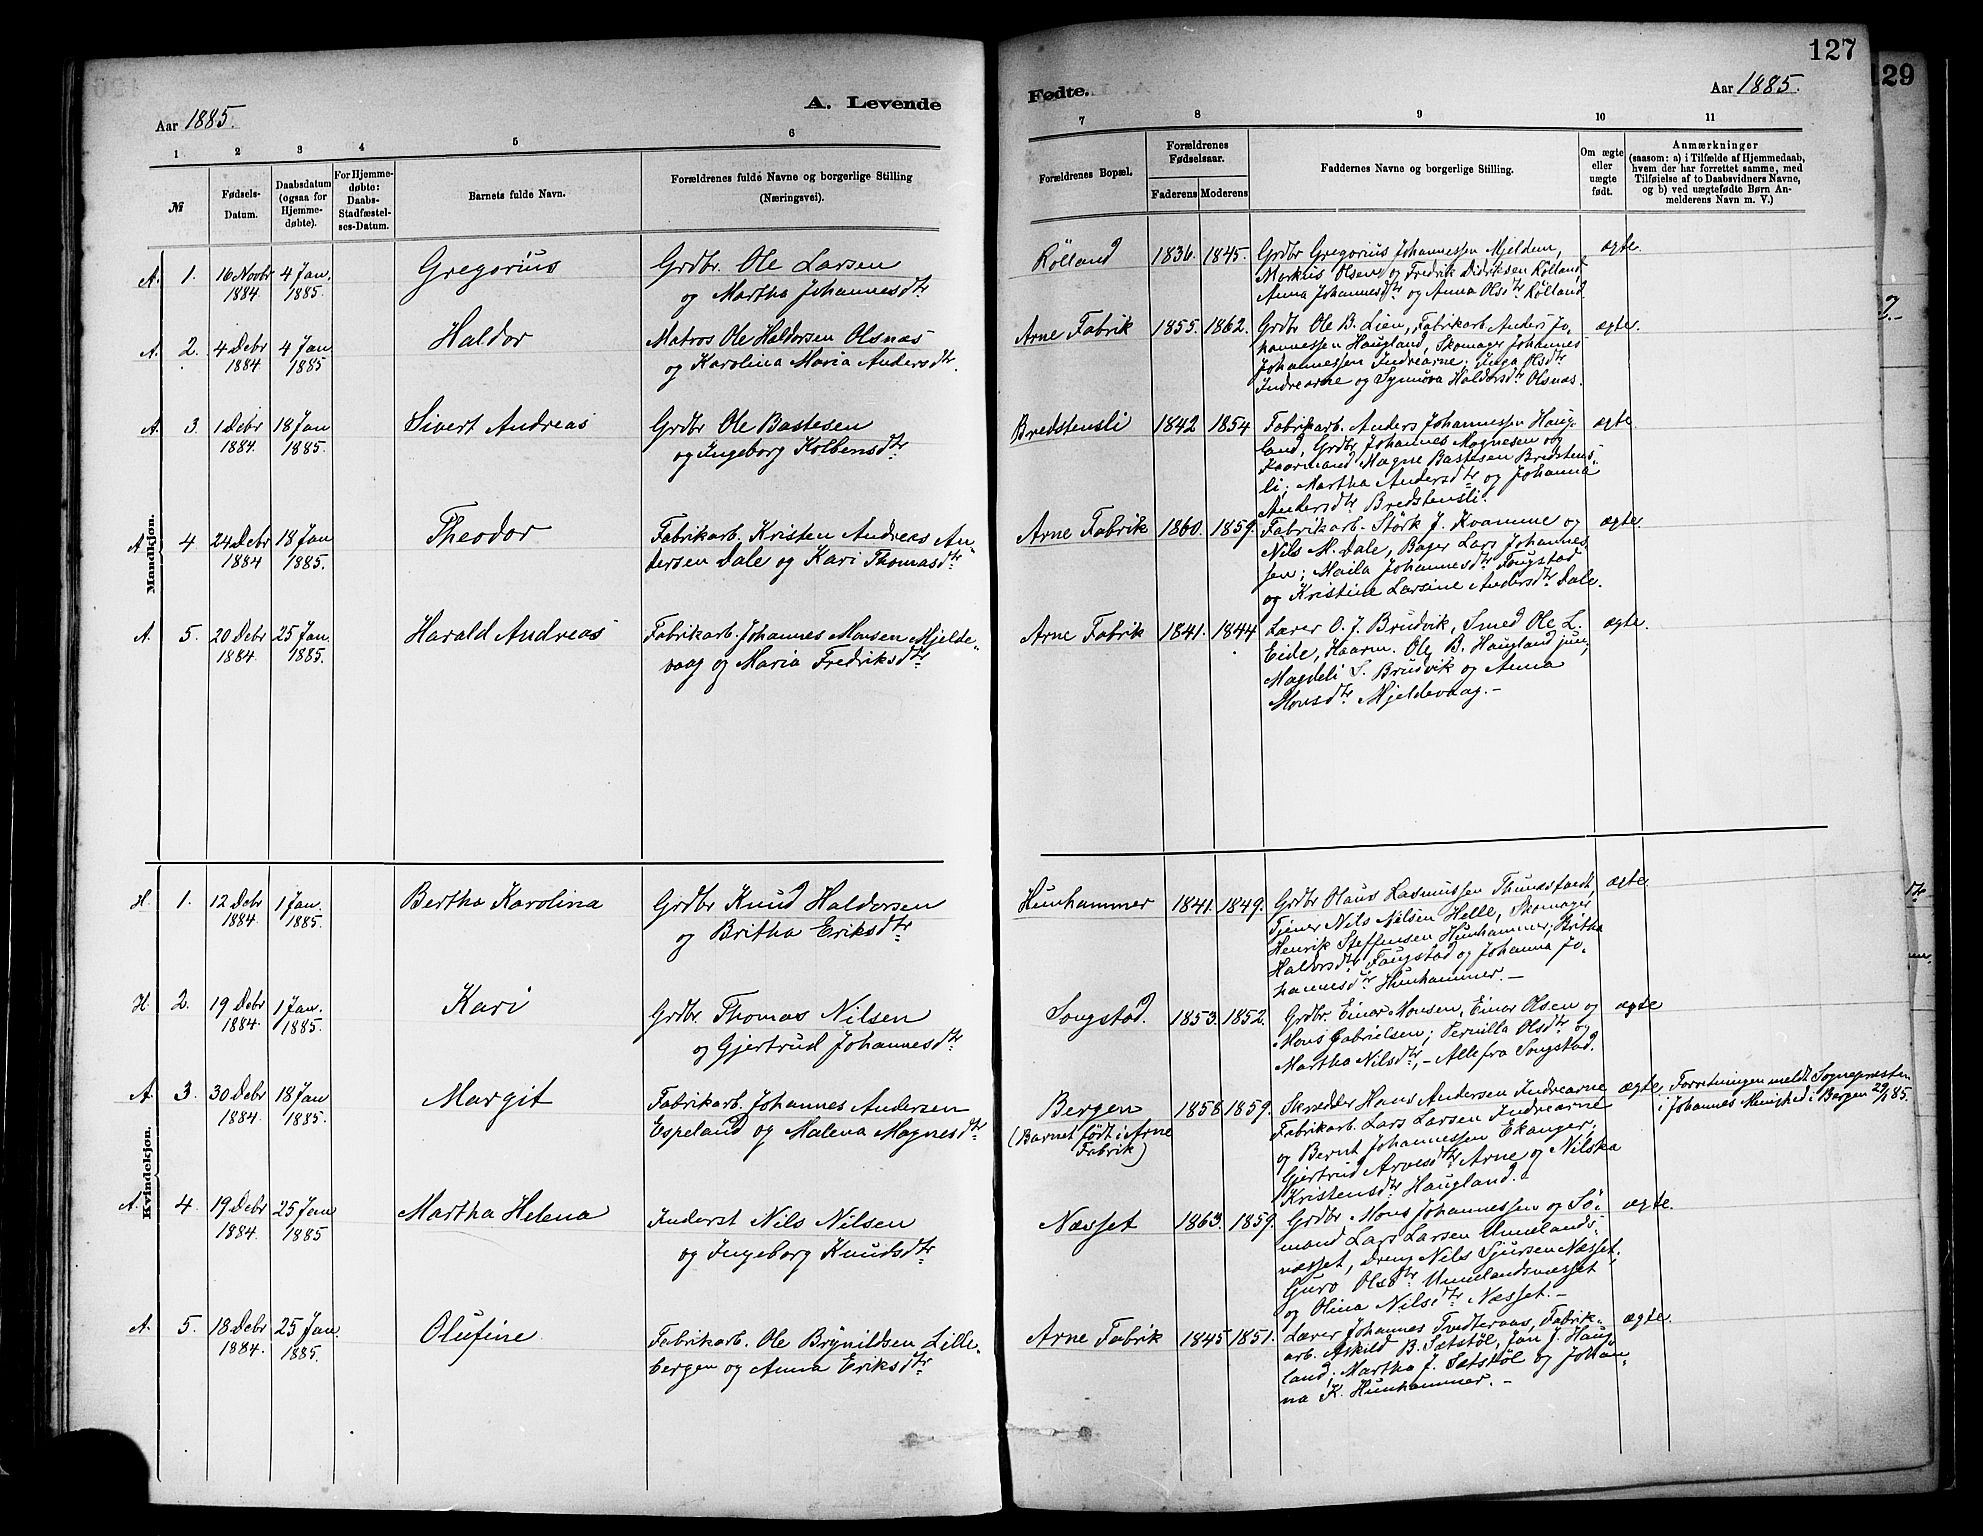 127
29
Aar 1885.
A. Levende
Fødte.
Aar 1885.
1 2 3 4 5 6 7 8 9 10 11
№
Fødsels-
Datum.
Daabsdatum
(ogsaa for
Hjemme-
døbte).
For Hjemme-
døbte:
Daabs-
Stadfæstel-
ses-Datum.
Barnets fulde Navn.
Forældrenes fulde Navne og borgerlige Stilling
(Næringsvei).
Forældrenes Bopæl.
Forældrenes
Fødselsaar.
Faderens Moderens
Faddernes Navne og borgerlige Stilling.
Om ægte
eller
uægte
født.
Anmærkninger
(saasom: a) i Tilfælde af Hjemmedaab,
hvem der har forrettet samme, med
Tilføielse af to Daabsvidners Navne,
og b) ved uægtefødte Børn An-
melderens Navn m. V.)
Mandkjøn.
A. 1. 16 Novbr 1884. 4 Jan. 1885. Gregorius
Grdbr. Ole Larsen
og Martha Johannesdtr
Rölland 1836. 1845.
Grdbr Gregorius Johannessen Mjeldem,
Markus Olsen og Fredrik Didriksen Rölland,
Anna Johannesdtr og Anna Olsdtr Rölland.
ægte.
A. 2. 4 Debr 1884 4 Jan 1885 Haldor
Matros Ole Haldorsen Olsnas
og Karolina Maria Andersdtr.
Arne Fabrik 1855. 1862.
Grdbr Ole B. Lien, Fabrikarb. Anders Jo-
hannessen Haugland, Skomager Johannes
Johannessen Indrearne; Inga Olsdtr
Indrearne og Synnöva Haldorsdtr Olsnas.
ægte.
A. 3. 1 Debr 1884. 18 Jan 1885. Sivert Andreas
Grdbr Ole Bastesen
og Ingeborg Kolbensdtr
Bredstensli 1842 1854
Fabrikarb. Anders Johannessen Haug-
land, Grdbr Johannes Magnesen og
Kaarmand Magne Bastesen Bredstens-
li; Martha Andersdtr og Johanna
Andersdtr Bredstensli.
ægte.
A. 4 24 Debr 1884 18 Jan 1885. Theodor
Fabrikarb. Kristen Andreas An-
dersen Dale og Kari Thomasdtr
Arne Fabrik 1860. 1859.
Fabrikarb. Störk J. Kvamme og
Nils M. Dale, Bager Lars Johannes-
sen; Maila Johannesdtr Fougstad
og Kristine Larsine Andersdtr Dale.
ægte.
A. 5. 20 Debr 1884 25 Jan. 1885. Harald Andreas
Fabrikarb. Johannes Monsen Mjelde-
vaag og Maria Fredriksdtr
Arne Fabrik 1841. 1844.
Lærer O. J. Brudvik, Smed Ole L.
Eide, Haarm. Ole B. Haugland jun;
Magdeli S. Brudvik og Anna
Monsdtr Mjeldevaag.-
ægte.
Kvindekjøn.
H. 1. 12 Debr 1884 1 Jan. 1885. Bertha Karolina
Grdbr Knud Haldorsen
og Britha Eriksdtr
Hunhammer 1841. 1849.
Grdbr Olaus Rasmussen Thunæstvedt,
Tjener Nils Nilsen Helle, Skomager
Henrik Steffensen Hunhammer; Britha
Haldorsdtr Fougstad og Johanna Jo-
hannesdtr Hunhammer.-
ægte.
H. 2. 19 Debr 1884. 1 Jan. 1885. Kari
Grdbr Thomas Nilsen
og Gjertrud Johannesdtr
Songstad. 1853. 1852.
Grdbr. Einar Monsen, Einar Olsen og
Mons Gabrielsen; Pernilla Olsdtr og
Martha Nilsdtr,- Alle fra Songstad.
ægte
A. 3. 30 Debr 1884. 18 Jan 1885. Margit
Fabrikarb. Johannes Andersen
Espeland og Malena Magnesdtr
Bergen
(Barnet født i Arne
Fabrik)
1858. 1859.
Skrædder Hans Andersen Indrearne
Fabrikarb. Lars Larsen Indrearne
og Bernt Johannessen Ekanger;
Gjertrud Arvesdtr Arne og Nilska
Kristensdtr Haugland.-
ægte.
Forretningen meldt Sognepresten
i Johannes Menighed i Bergen 29/1 85.
A. 4. 19 Debr 1884. 25 Jan 1885 Martha Helena
Inderst Nils Nilsen
og Ingeborg Knudsdtr
Næsset 1863. 1859.
Grdbr Mons Johannessen og Sö-
mand Lars Larsen Unnelands-
næsset, dreng Nils Sjursen Næsset;
Guro Olsdtr Unnelandsnæsset
og Olina Nilsdtr Næsset.-
ægte.
A. 5. 18 Debr 1884. 25 Jan. 1885. Olufine
Fabrikarb. Ole Brynildsen Lille-
bergen og Anna Eriksdtr
Arne Fabrik 1845. 1851.
Lærer Johannes Tvedteraas, Fabrik-
arb. Askild B. Sætstöl, Jan J. Haug-
land; Martha J. Sætstöl og Johan-
na K. Hunhammer.-
ægte.